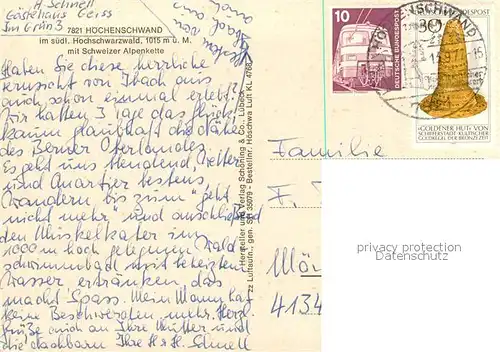 H. Schnell
Gästehaus Geiss
Im Grün 3
7821 HÖCHENSCHWAND
im südl. Hochschwarzwald, 1015 m ü. M.
mit Schweizer Alpenkette
Haben Sie diese herrliche
Fernsicht von Ibach aus
auch schon einmal erlebt?
Wir hatten 3 Tage das
kaum glaubhaft die Nähe
des Berner Oberlandes.
Es geht uns blendend, Wetter
und Quartier bestens,
Wandern bis zum "geht
nicht mehr" und anschließend
den Muskelkater im
1000 m hoch gelegenen Wald
schwimmbad mit beheiztem
Wasser ertränken, das
macht Spass. Mein Mann hat
keine Beschwerden mehr. Herzl.
Grüße auch an Ihre Mutter und
die Nachbarn Ihre H. + H. Schnell
Hersteller und Verlag Schöning & Co., Lübeck
zz Luftaufn. gen. SH 35079 - Bestellnr. Hoschwa Luft KL 4768
10
DEUTSCHE BUNDESPOST
HÖCHENSCHWAND
DEUTSCHE BUNDESPOST
30
»GOLDENER HUT« VON
SCHIFFERSTADT·KULTISCHER
GOLDKEGEL DER BRONZEZEIT
Familie
F.
Mör
4134
privacy protection
Datenschutz